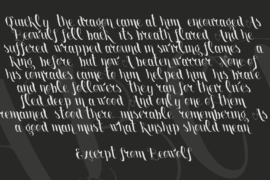 Quickly the dragon came at him, encouraged As
Beowulf fell back its breath flared And he
suffered wrapped around in swirling flames - a
king, before, but now A beaten warrior. None of
his comrades Came to him, helped him, his brave
and noble followers They ran for their lives
fled deep in a wood And only one of them
remained, stood there, miserable, remembering, As
a good man must, what kinship should mean
Excerpt from Beowulf